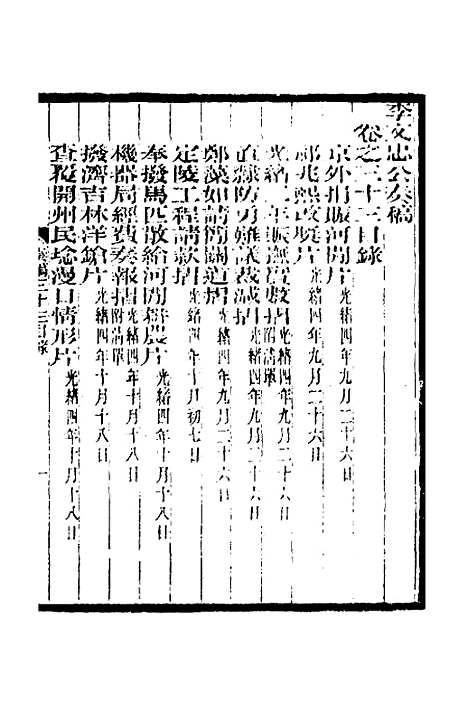 李文忠公奏稿
卷之三十三目錄
京外捐賑河間片 光緒四年九月二十六日
祁兆熙改獎片 光緒四年九月二十六日
光緒 年賑無着數摺 附清單 光緒四年九月二十六日
直隸防勇難議裁減摺 光緒四年九月二十六日
鄭藻如請簡關道摺 光緒四年九月二十六日
定陵工程請款摺 光緒四年十月初七日
奉撥馬匹散給河間 農片 光緒四年十月十八日
機器局經費奏報摺 附清單 光緒四年十月十八日
撥濟吉林洋鎗片 光緒四年十月十八日
查覆開州民埝漫口情形片 光緒四年十月十八日
奏稿三十三目錄
一